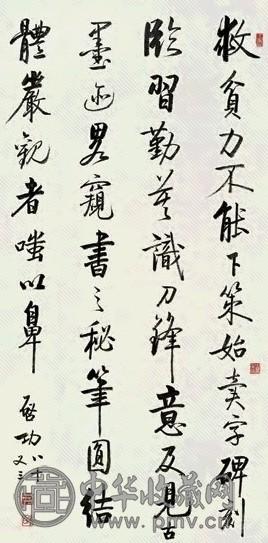 救貧力不能下策始賣字碑刻
臨習勤莫識刀鋒意及見古
墨迹畧窺書之秘筆圓結
體嚴觀者嗤以鼻 啓功八十又三
中华收藏网
www.pmv.cn